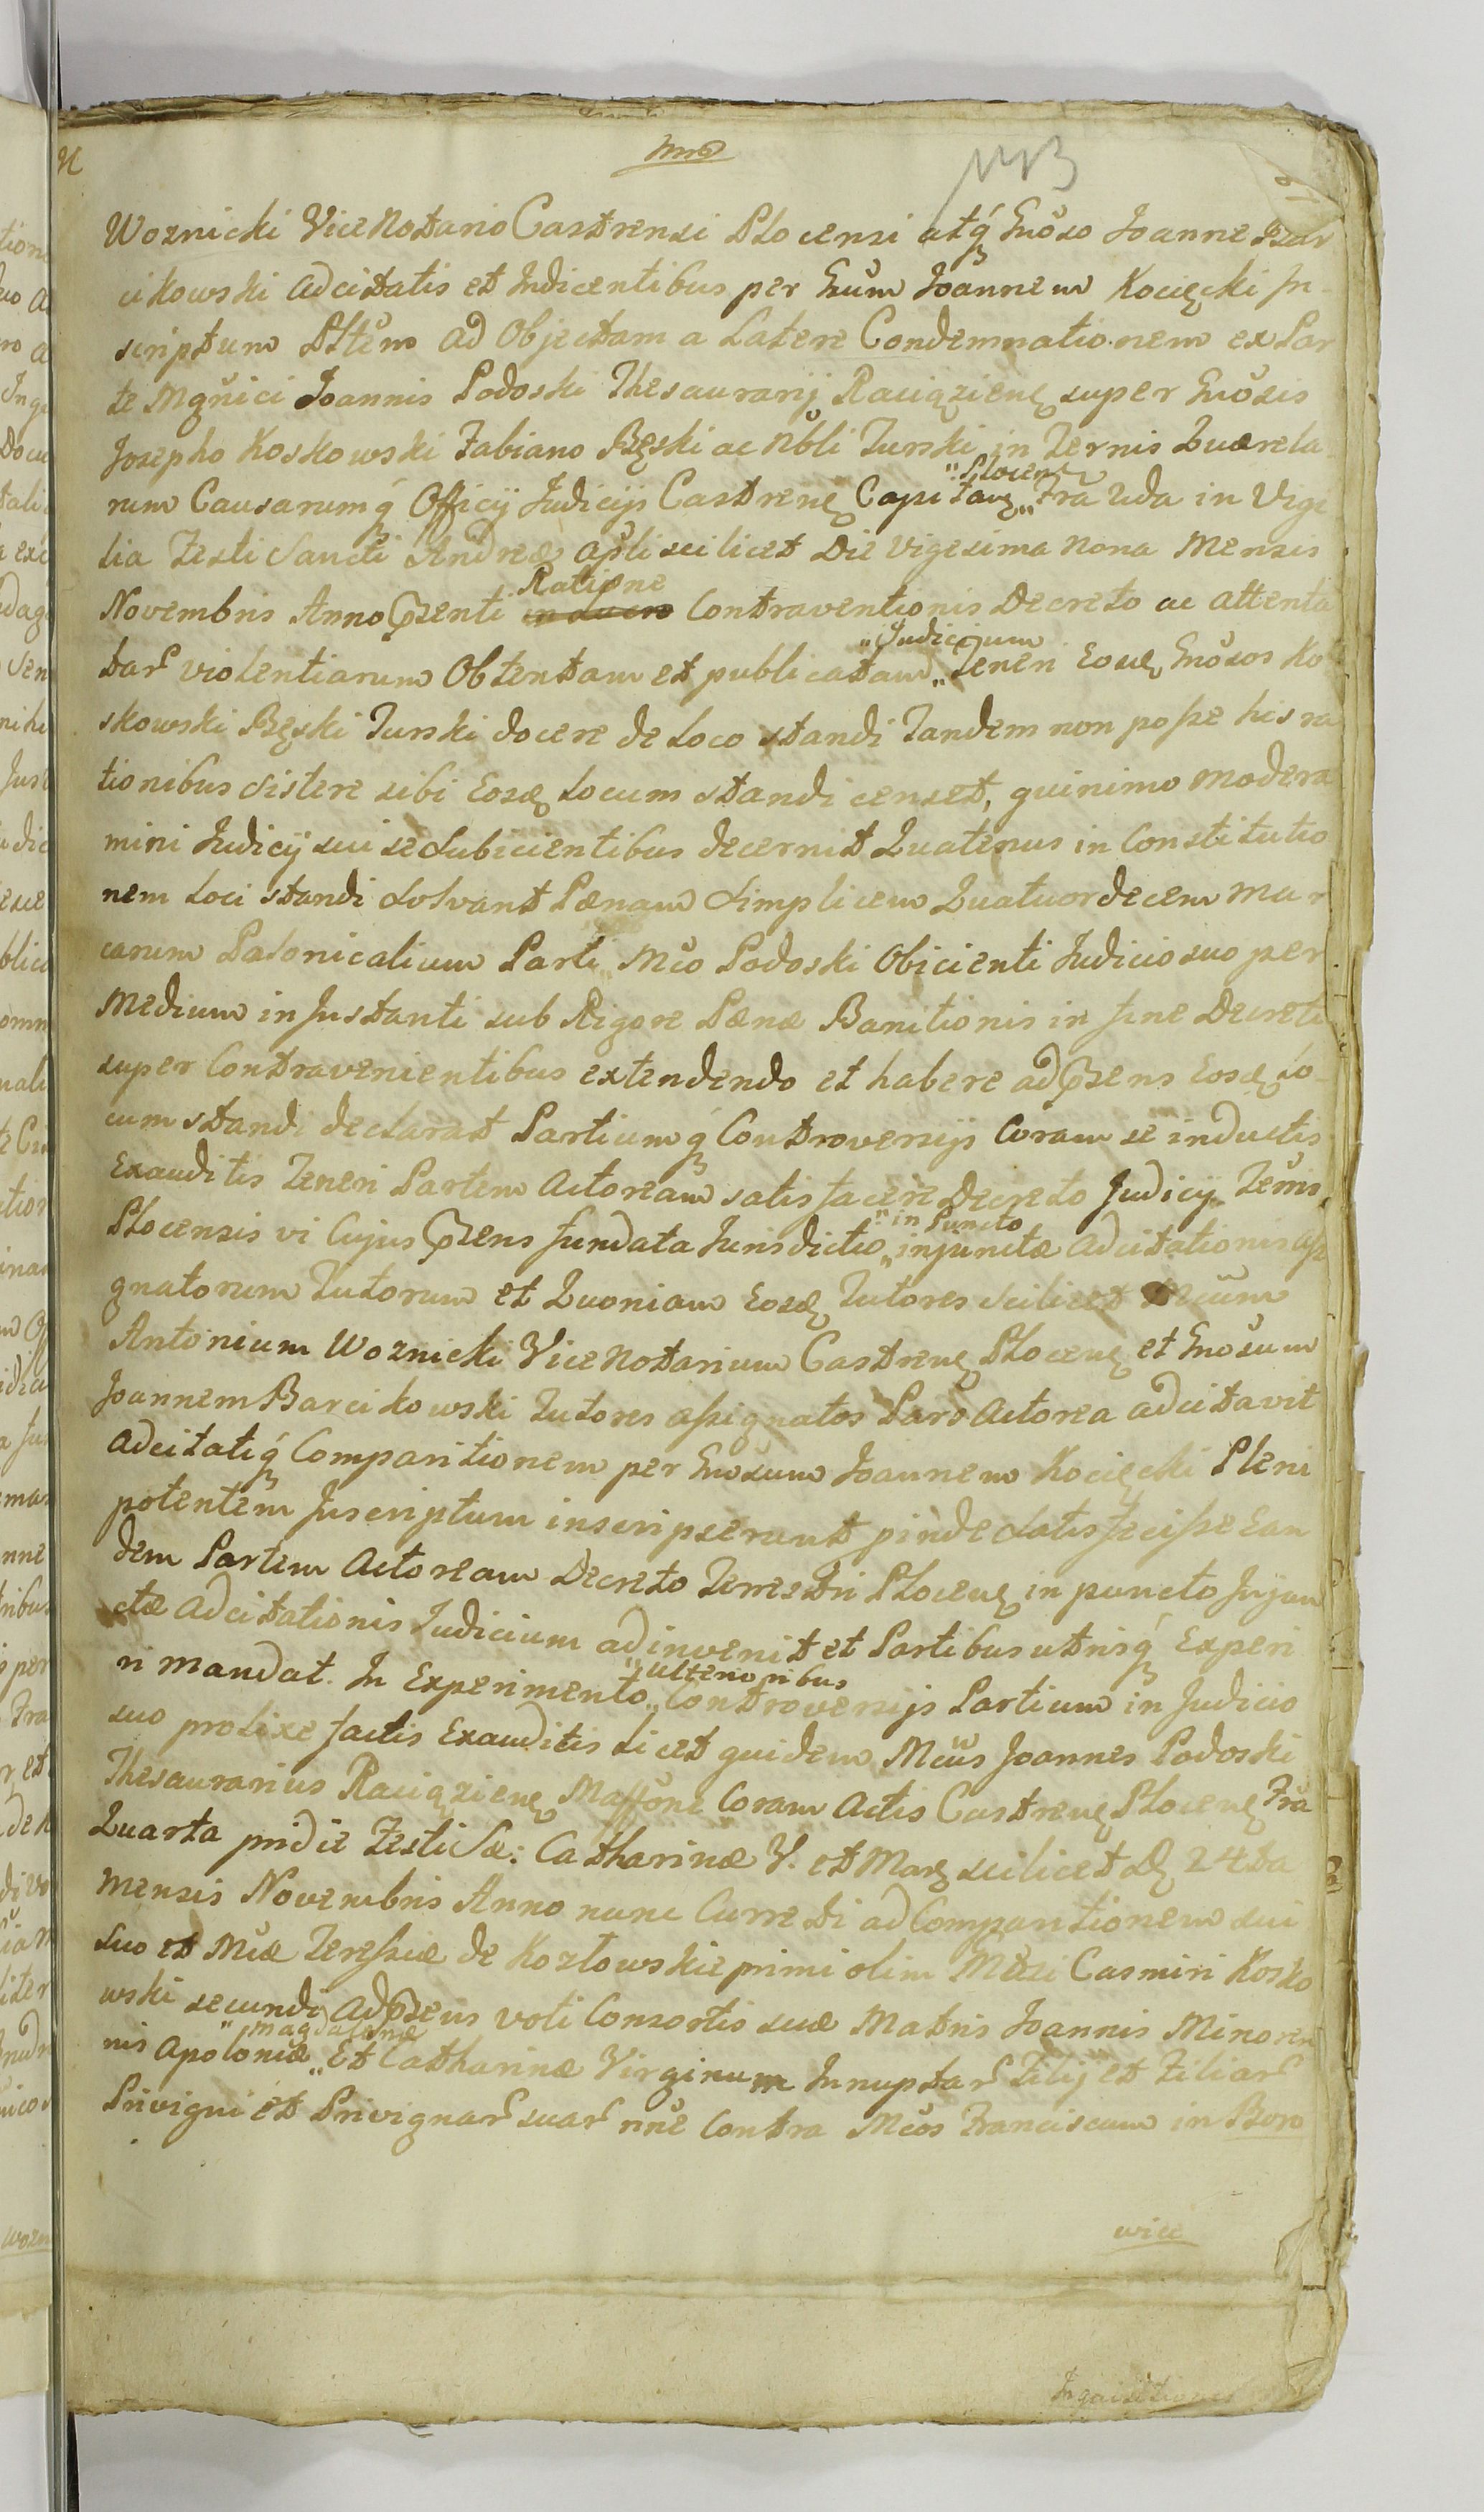 NB
Woznicki Vice Notario Castrensi Plocensi atq́ꝫ Gnõso Joanne Bar
cikowski adcitatis et Indicentibus per Gnũm Joannem Kocięcki In-
scriptum Pltẽm ad Objectam a Latere Condemnationem ex Par
te Mgnĩci Joannis Podoski Thesaurarij Raciązienꝫ super Gnõsis
Josepho Koskowski Fabiano Bęski ac Nbli Turski in Ternis Quærela
rum Causarumq́ꝫ Officij Judicijs Castrenꝫ Capitanꝫ „Plocenꝫ„ Fra 2da in Vigi
lia Festi Sancti Andreæ Apli scilicet Die Vigesima Nona Mensis
Novembris Anno Pzenti Ratione Contraventionis Decreto ac attenta
tar̃ violentiarum Obtentam et publicatam „Judicium„ Teneri Eosdꝫ Gnõsos Ko
skowski Bęski Turski docere de Loco standi Tandem non posse his ra
tionibus Sistere sibi Eosdꝫ Locum standi censet, quinimo modera
mini Judicij sui se Subicientibus decernit Quatenus in Constitutio
nem Loci standi Solvant Pænam Simplicem Quatuordecem Mar
carum Polonicalium Parti Mcõ Podoski Obicienti Judicio suo per
Medium in Instanti sub Rigore Pænæ Banitionis in fine Decreti
super Contravenientibus extendendo et habere ad Pzens Eosdꝫ Lo-
cum standi declarat Partiumq́ꝫ Controversijs Coram se inductis
Exauditis Teneri Partem Actoream satisfacere Decreto Judicij Terris
Plocensis vi Cujus Pzens fundata Jurisdictio „in Puncto„ injunctæ adcitationis assi
gnatorum Tutorum et Quoniam Eosdꝫ Tutores Scilicet Mcũm
Antonium Woznicki Vice Notarium Castrenꝫ Plocenꝫ et Gnosum
Joannem Barcikowski Tutores assignatos Pars Actorea adcitavit
adcitatiq́ꝫ Comparitionem per Gnosum Joannem Kocięcki Pleni
potentem Inscriptum inscripserunt pinde Satis fecisse Ean
dem Partem Actoream Decreto Terrestri Plocenꝫ in puncto Injun
ctæ adcitationis Judicium adinvenit et Partibus utrisq́ꝫ Experi
ri mandat. In Experimento „ulterioribus„ Controversijs Partium in Judicio
suo prolixe factis Exauditis Licet quidem Mcũs Joannes Podoski
Thesaurarius Raciązienꝫ Mãffone Coram Actis Castrenꝫ Plocenꝫ Fra
Quarta pridie Festi Sæ: Catharinæ V. et Marꝫ scilicet dꝫ 24ta
Mensis Novembris Anno nunc Curreti ad Comparitionem sui
Suo et Mcæ Teressiæ de Kozłowskie primi olim Mcĩ Casmiri Kosko
wski secundi ad Pzens voti Consortis suæ Matris Joannis Minoren
nis Apoloniæ „Magdalenæ„ Et Catharinæ Virginum Innuptar̃ Filij et Filiar̃
Privigni et Privignar̃ suar̃ nñe Contra Mcõs Franciscum in Boro
wice
Inquisitiones